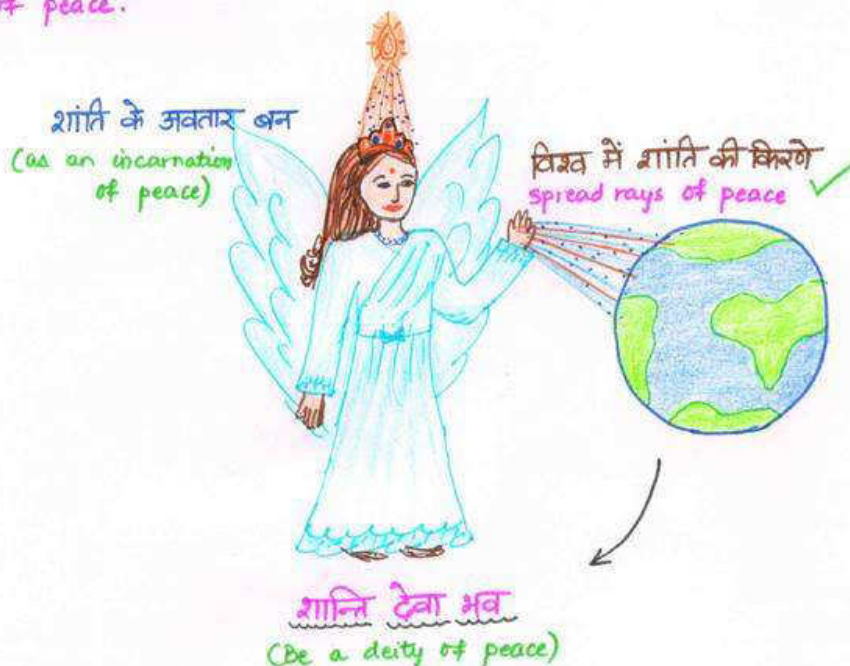 of peace.
शांति के अवतार बन
(as an incarnation
of peace)
विश्व में शांति की किरणे
spread rays of peace
शान्ति देवा भव
(Be a deity of peace)